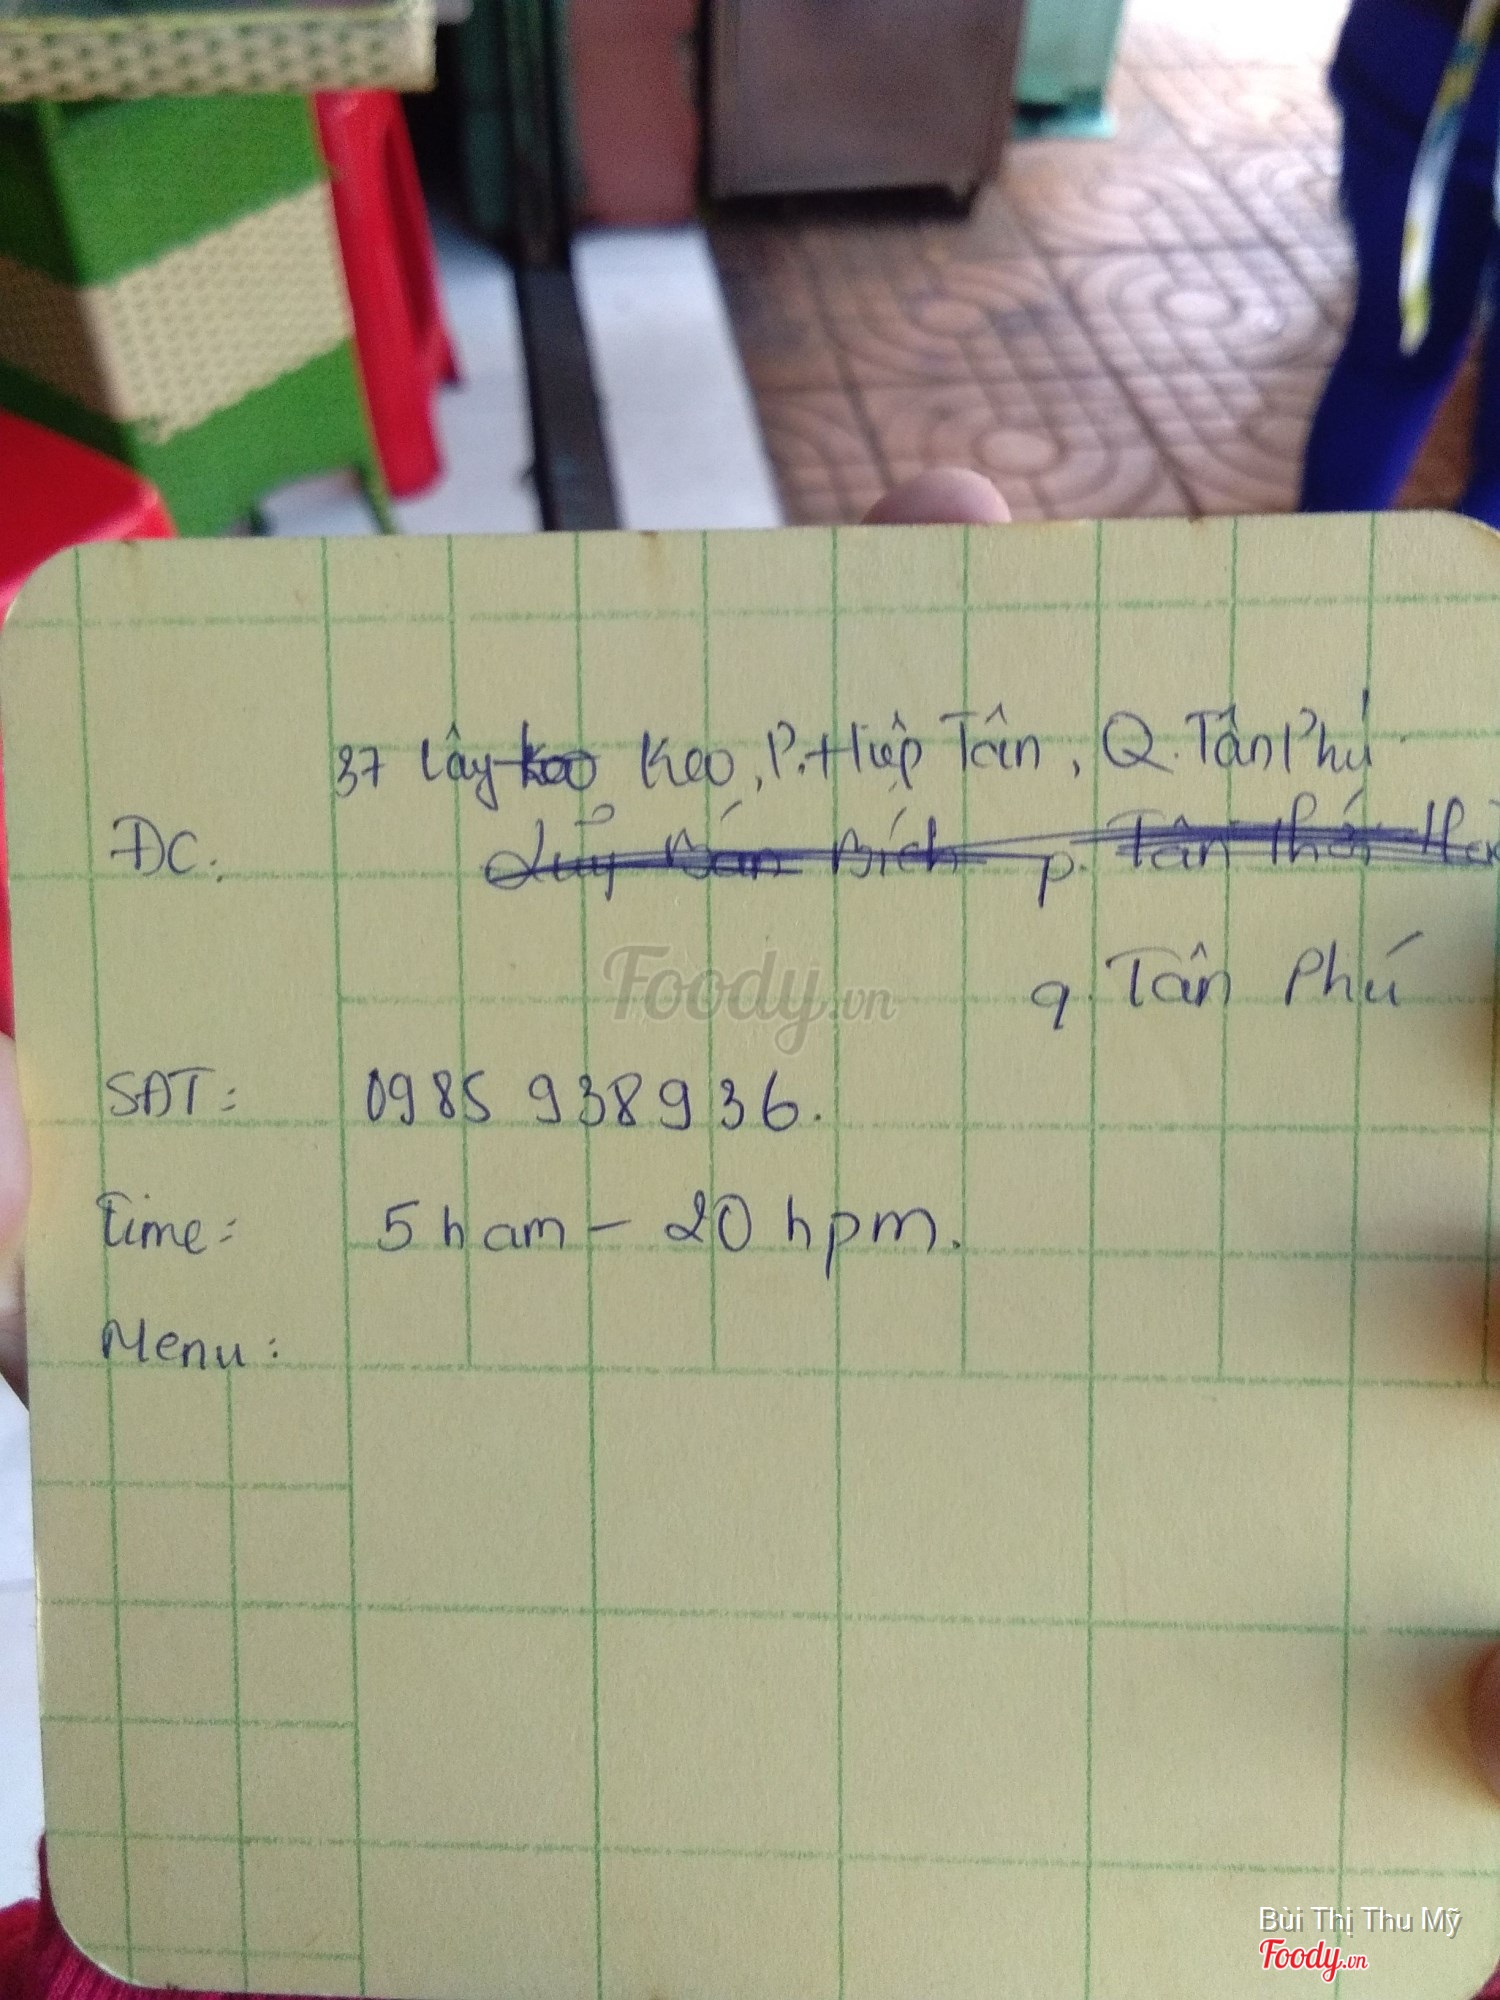 37 Cây Keo, P. Hiệp Tân, Q. Tân Phú
ĐC: Luỹ Bán Bích p. Tân Thới
q. Tân Phú
SĐT: 0985 938936.
time: 5 h am - 20 h pm.
Menu:
Foody.vn
Bùi Thị Thu Mỹ
Foody.vn